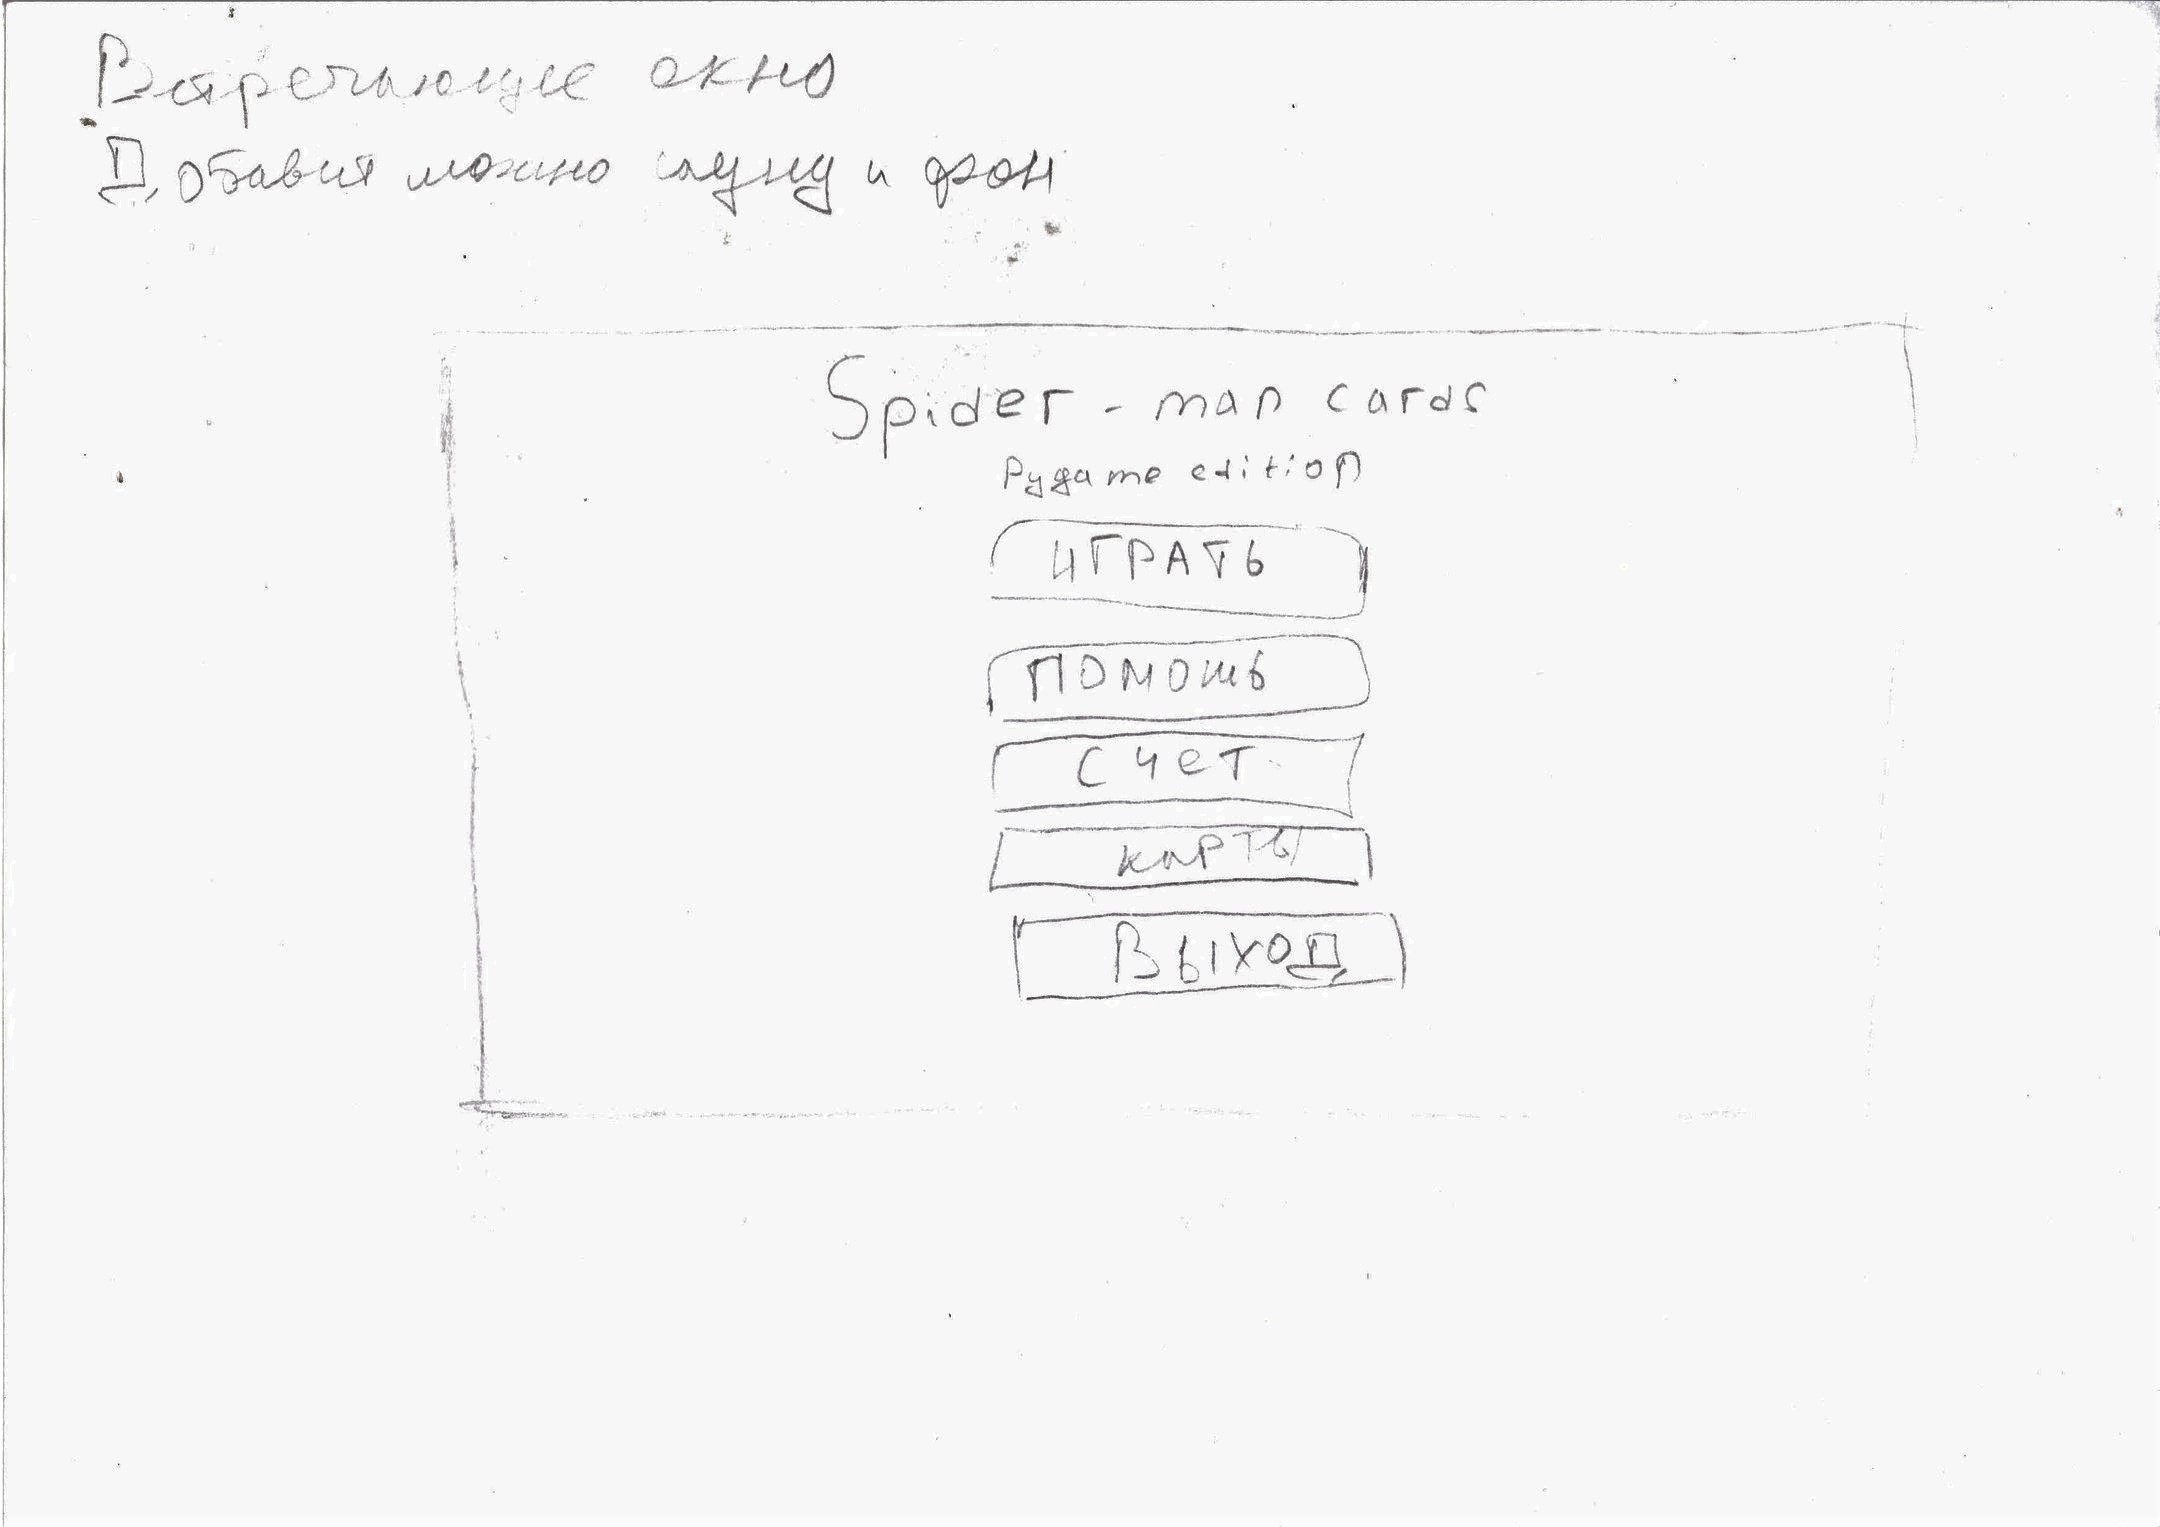 Встречающее окно
Добавит можно и фон
Spider - man cards
Pygame edition
ИГРАТЬ
ПОМОШЬ
СЧЕТ
КАРТЫ
ВЫХОД